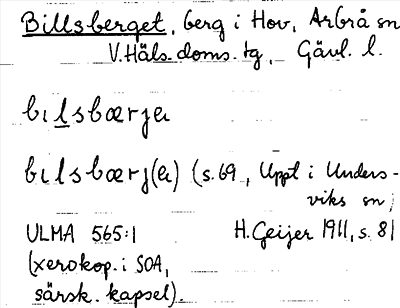 Billsberget, berg i Hov, Arbrå sn
V. Häls. doms. tg, Gävl. l.
bɩlsbærjɐ
bɩlsbærj(ɐ) (s. 69, Uppt i Unders-
viks sn;
ULMA 565:1 H. Geijer 1911, s. 81
(xerokop. i SOA,
särsk. kapsel).